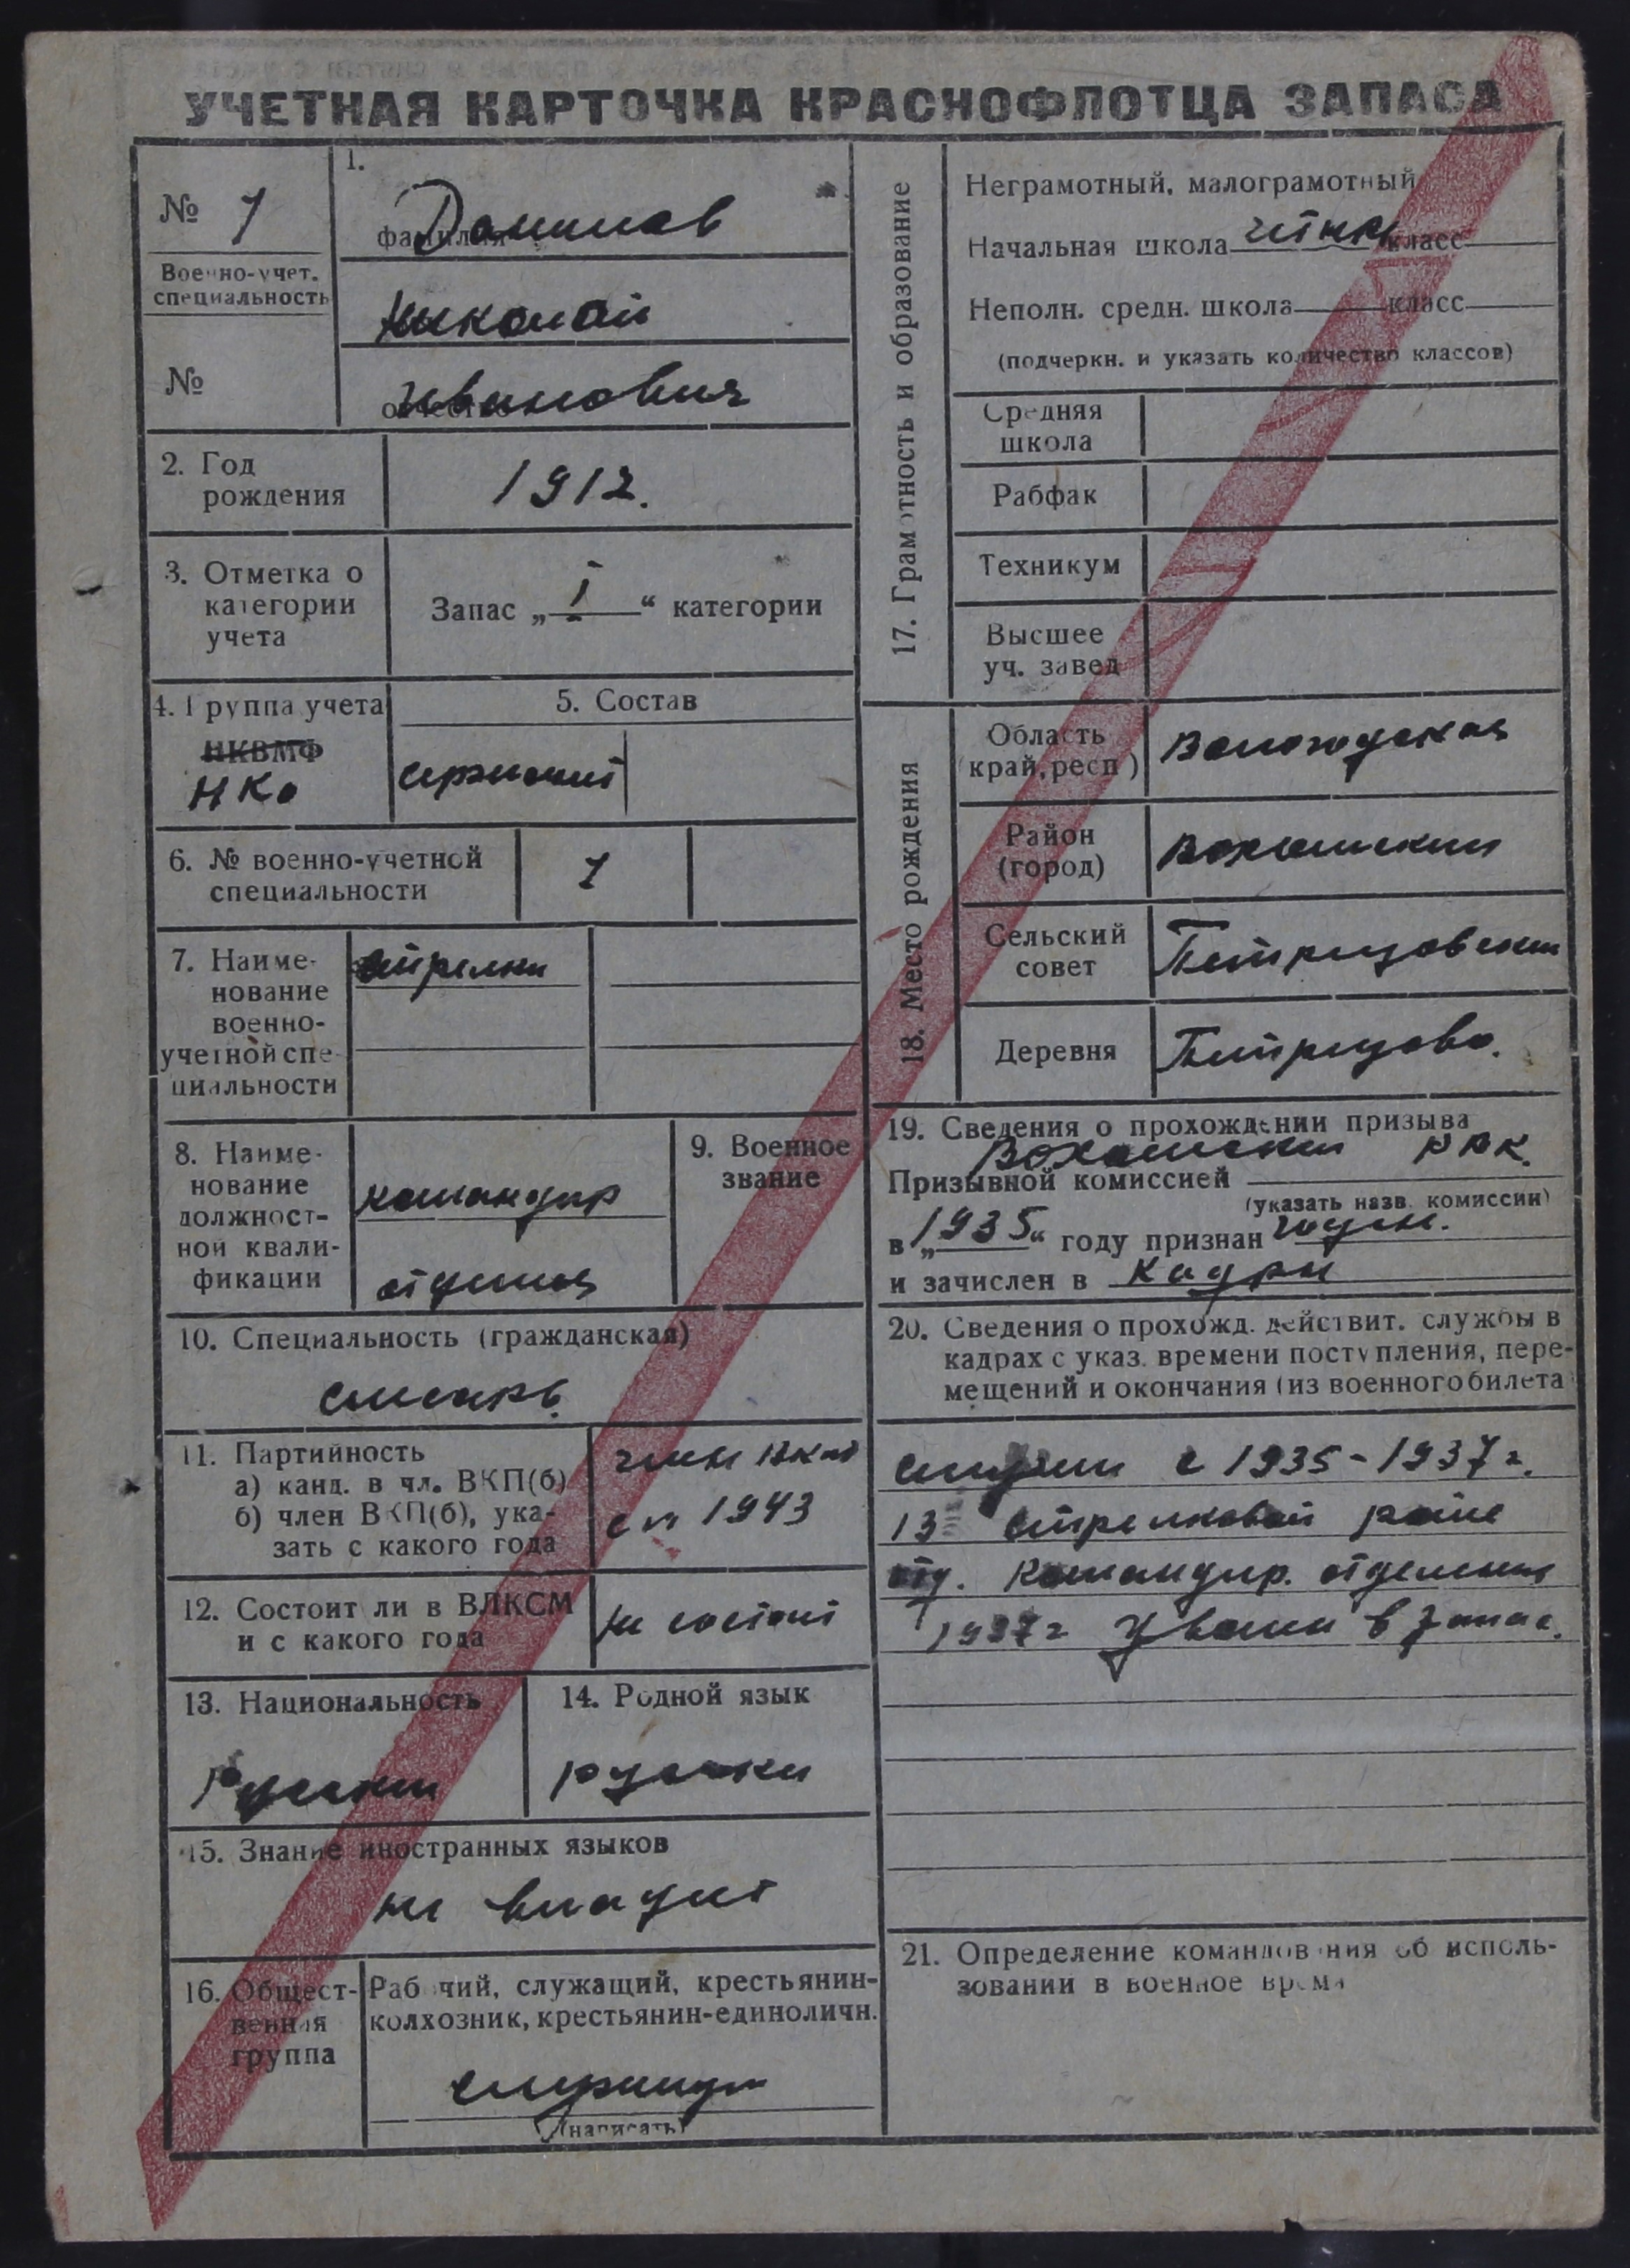 УЧЕТНАЯ КАРТОЧКА КРАСНОФЛОТЦА ЗАПАСА
№ 1
Военно-учет.
специальность
№
1.
Данилов
фамилия
Николай
Иванович
отчество
2. Год
рождения
1912.
3. Отметка о
категории
учета
Запас „ I “ категории
4. Группа учета
НКВМФ
НКО
5. Состав
сержант
6. № военно-учетной
специальности
1
7. Наиме-
нование
военно-
учетной спе-
циальности
Стрелки
8. Наиме-
нование
должност-
ной квали-
фикации
командир
отделен
9. Военное
звание
10. Специальность (гражданская)
слесарь
11. Партийность
а) канд. в чл. ВКП(б)
б) член ВКП(б), ука-
зать с какого года
член ВКПб
с 1943
12. Состоит ли в ВЛКСМ
и с какого года
не состоит
13. Национальность
Русский
14. Родной язык
русский
15. Знание иностранных языков
не владеет
16. Общест-
венная
группа
Рабочий, служащий, крестьянин-
колхозник, крестьянин-единоличн.
служащий
(написать)
17. Грамотность и образование
Неграмотный, малограмотный
Начальная школа класс
Неполн. средн. школа класс
(подчеркн. и указать количество классов)
Средняя
школа
Рабфак
Техникум
Высшее
уч. завед
18. Место рождения
Область
край, респ)
Вологодская
Район
(город)
Вохомский
Сельский
совет
Петрецовский
Деревня
Петрецово.
19. Сведения о прохождении призыва
Призывной комиссией Вохомский РВК.
(указать назв. комиссии)
в „1935“ году признан годен.
и зачислен в Кадры
20. Сведения о прохожд. действит. службы в
кадрах с указ. времени поступления, пере-
мещений и окончания (из военного билета
служил с 1935-1937 г.
13 Стрелковой роте
Командир. отделения
1937г Уволен в запас.
21. Определение командования об исполь-
зовании в военное время